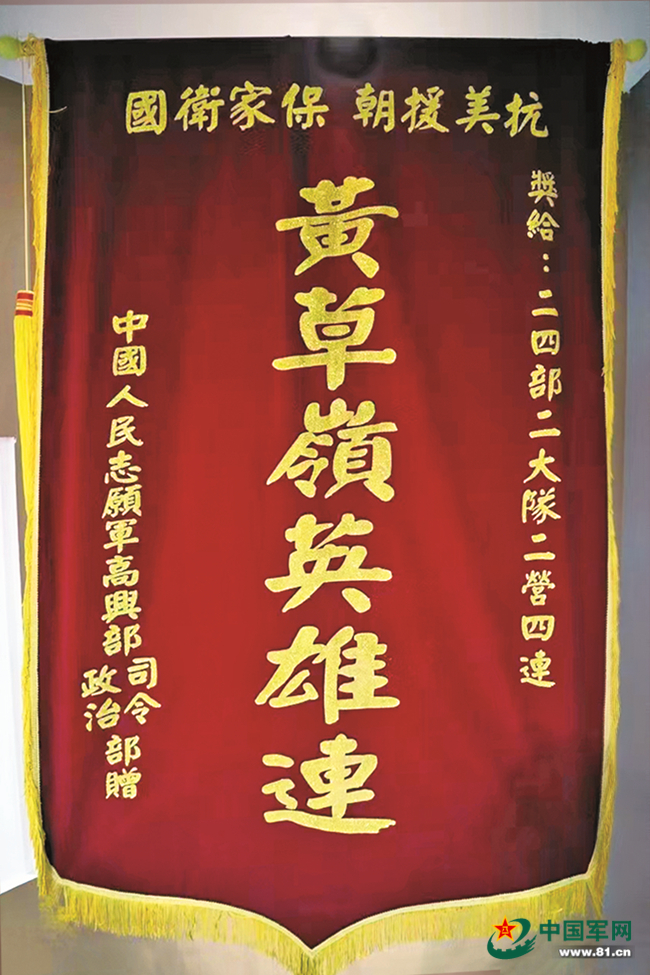 抗美援朝 保家衛國
獎給：二四部二大隊二營四連
黃草嶺英雄連
中國人民志願軍高興部司令
政治部贈
中国军网
www.81.cn